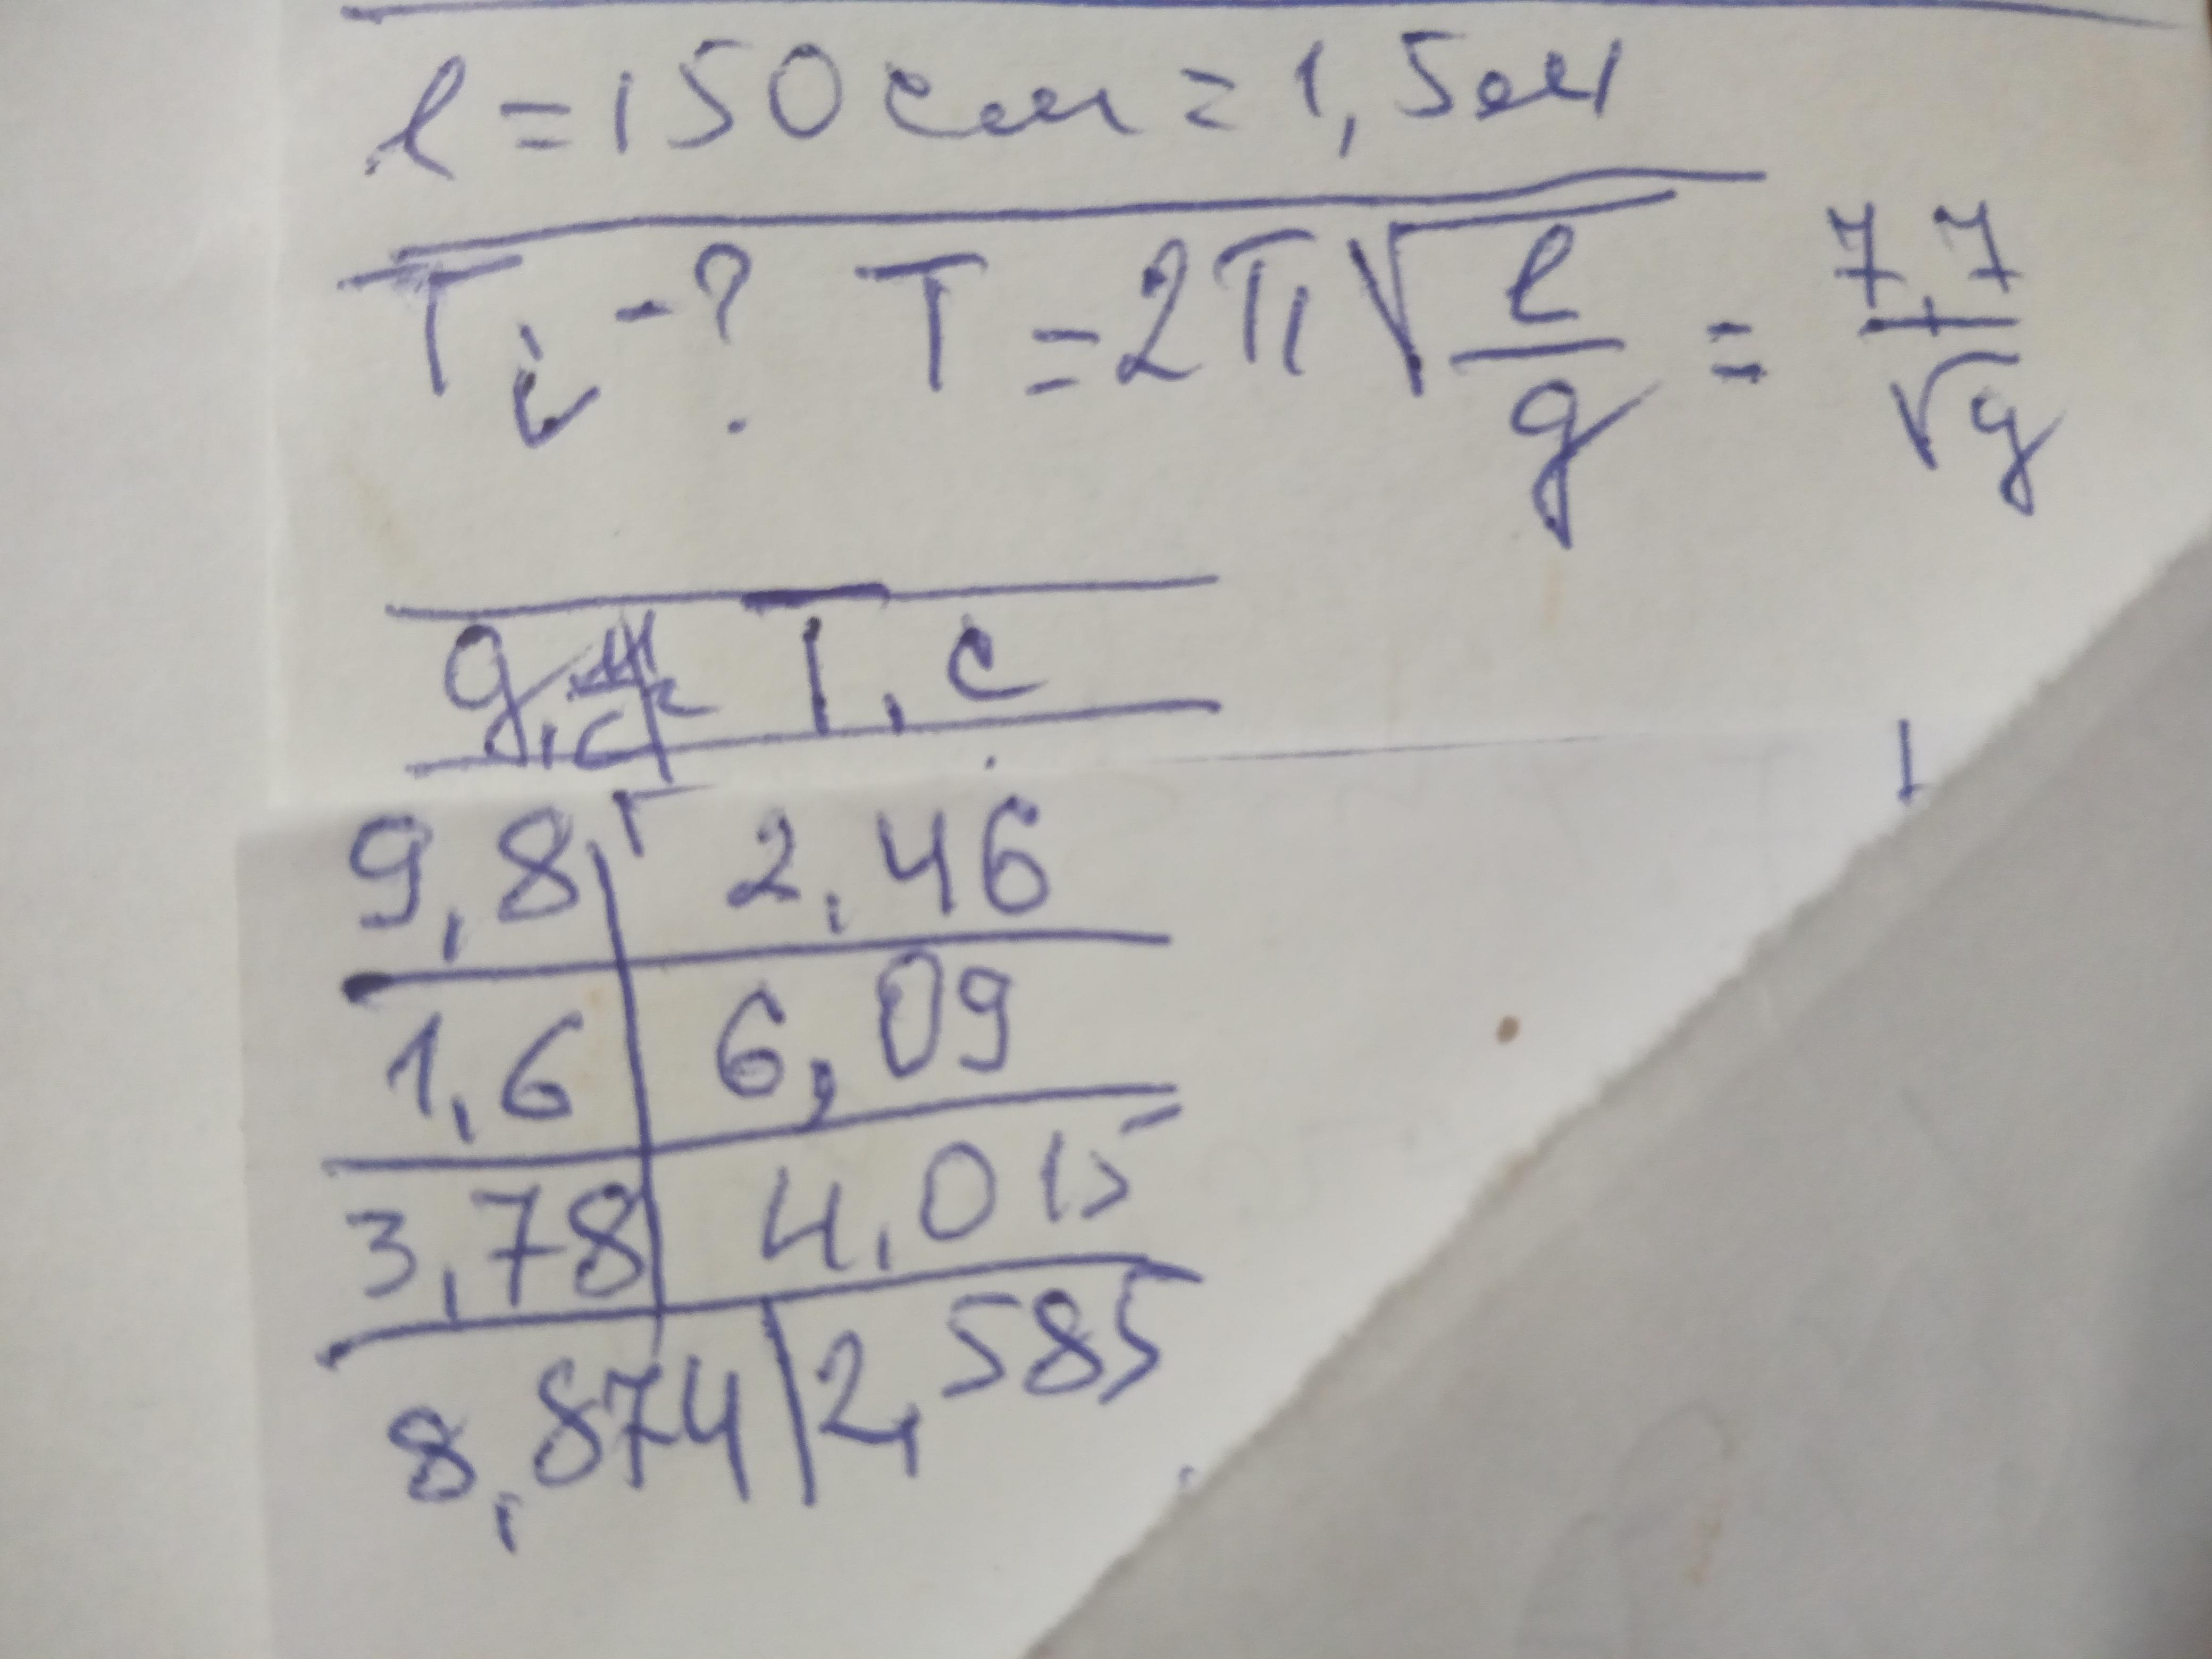 l = 150 см = 1,5 м
Ti - ? T = 2π√(l/g) = 7,7/√g
g, м/с² T, с
9,8 2,46
1,6 6,09
3,78 4,015
8,874 2,585